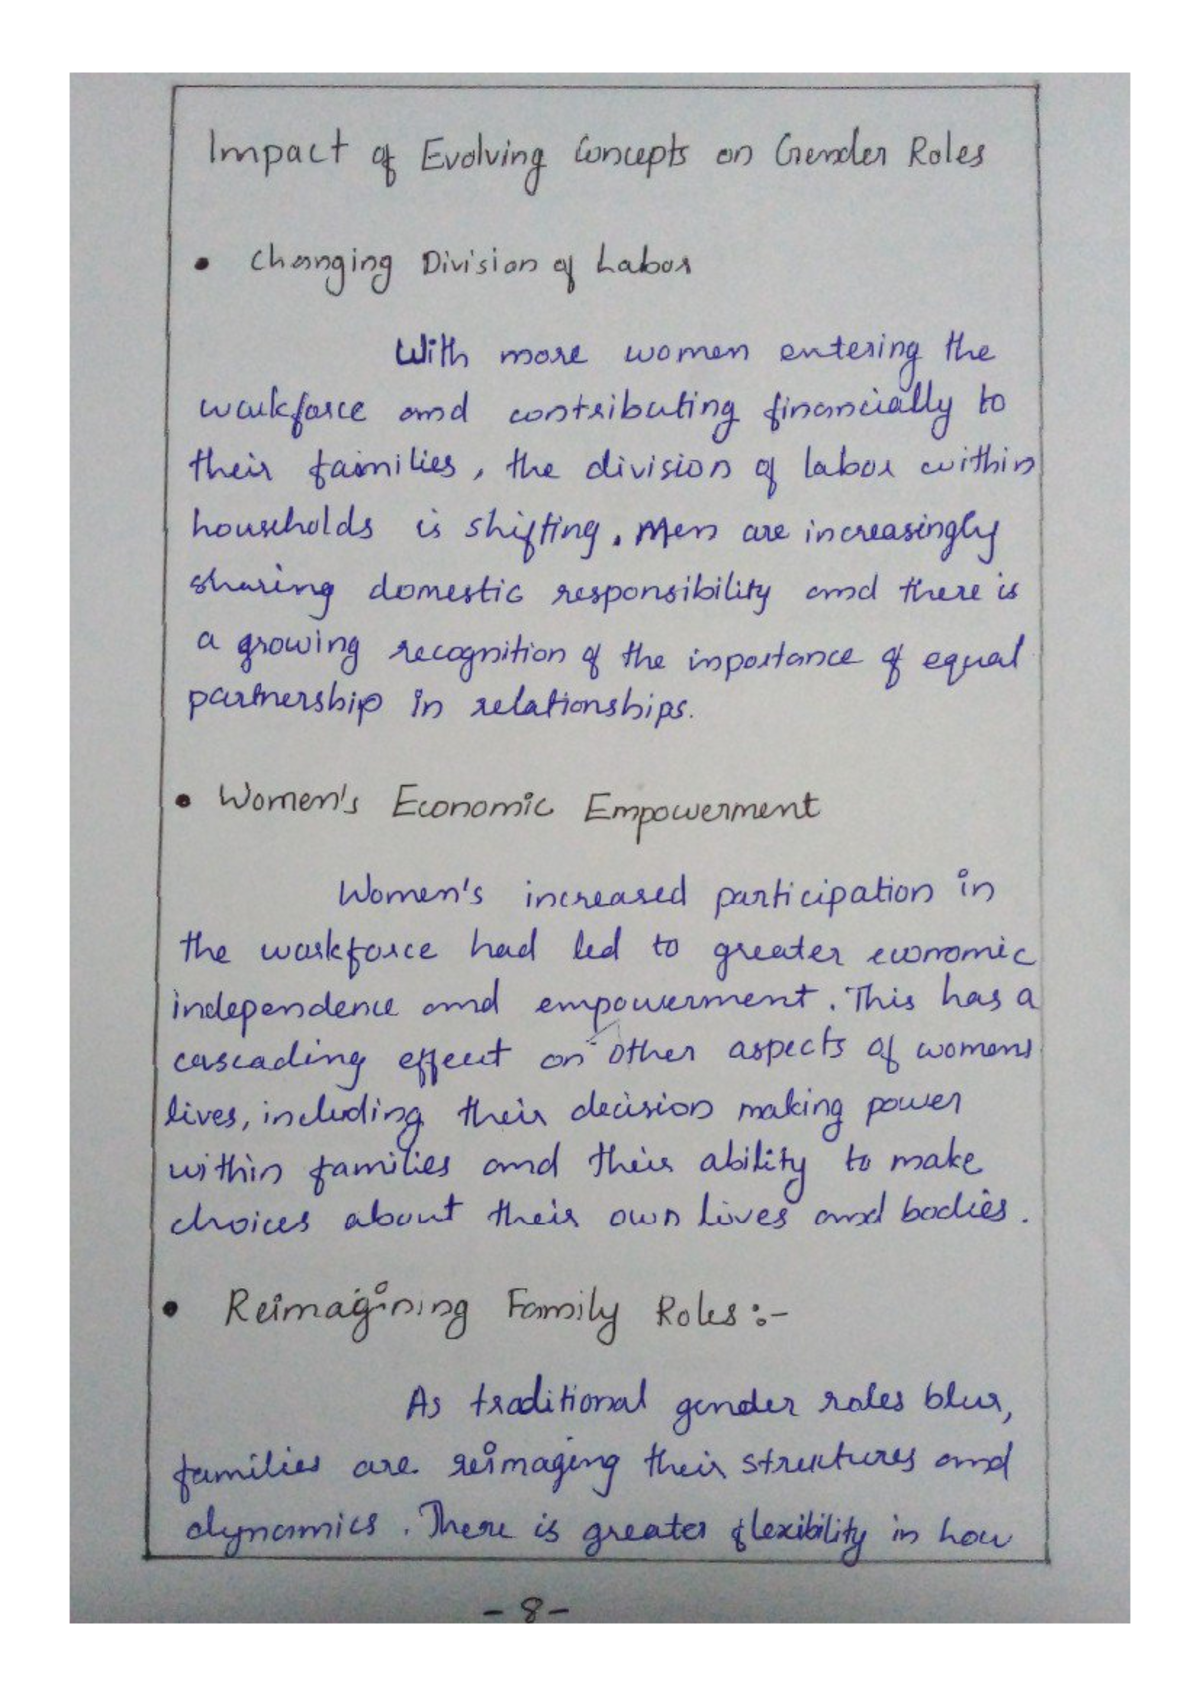 Impact of Evolving Concepts on Gender Roles
• Changing Division of Labor
With more women entering the
workforce and contributing financially to
their families, the division of labor within
households is shifting. Men are increasingly
sharing domestic responsibility and there is
a growing recognition of the importance of equal
partnership in relationships.
• Women's Economic Empowerment
Women's increased participation in
the workforce had led to greater economic
independence and empowerment. This has a
cascading effect on other aspects of womens
lives, including their decision making power
within families and their ability to make
choices about their own lives and bodies.
• Reimagining Family Roles :-
As traditional gender roles blur,
families are reimaging their structures and
dynamics. There is greater flexibility in how
- 8 -